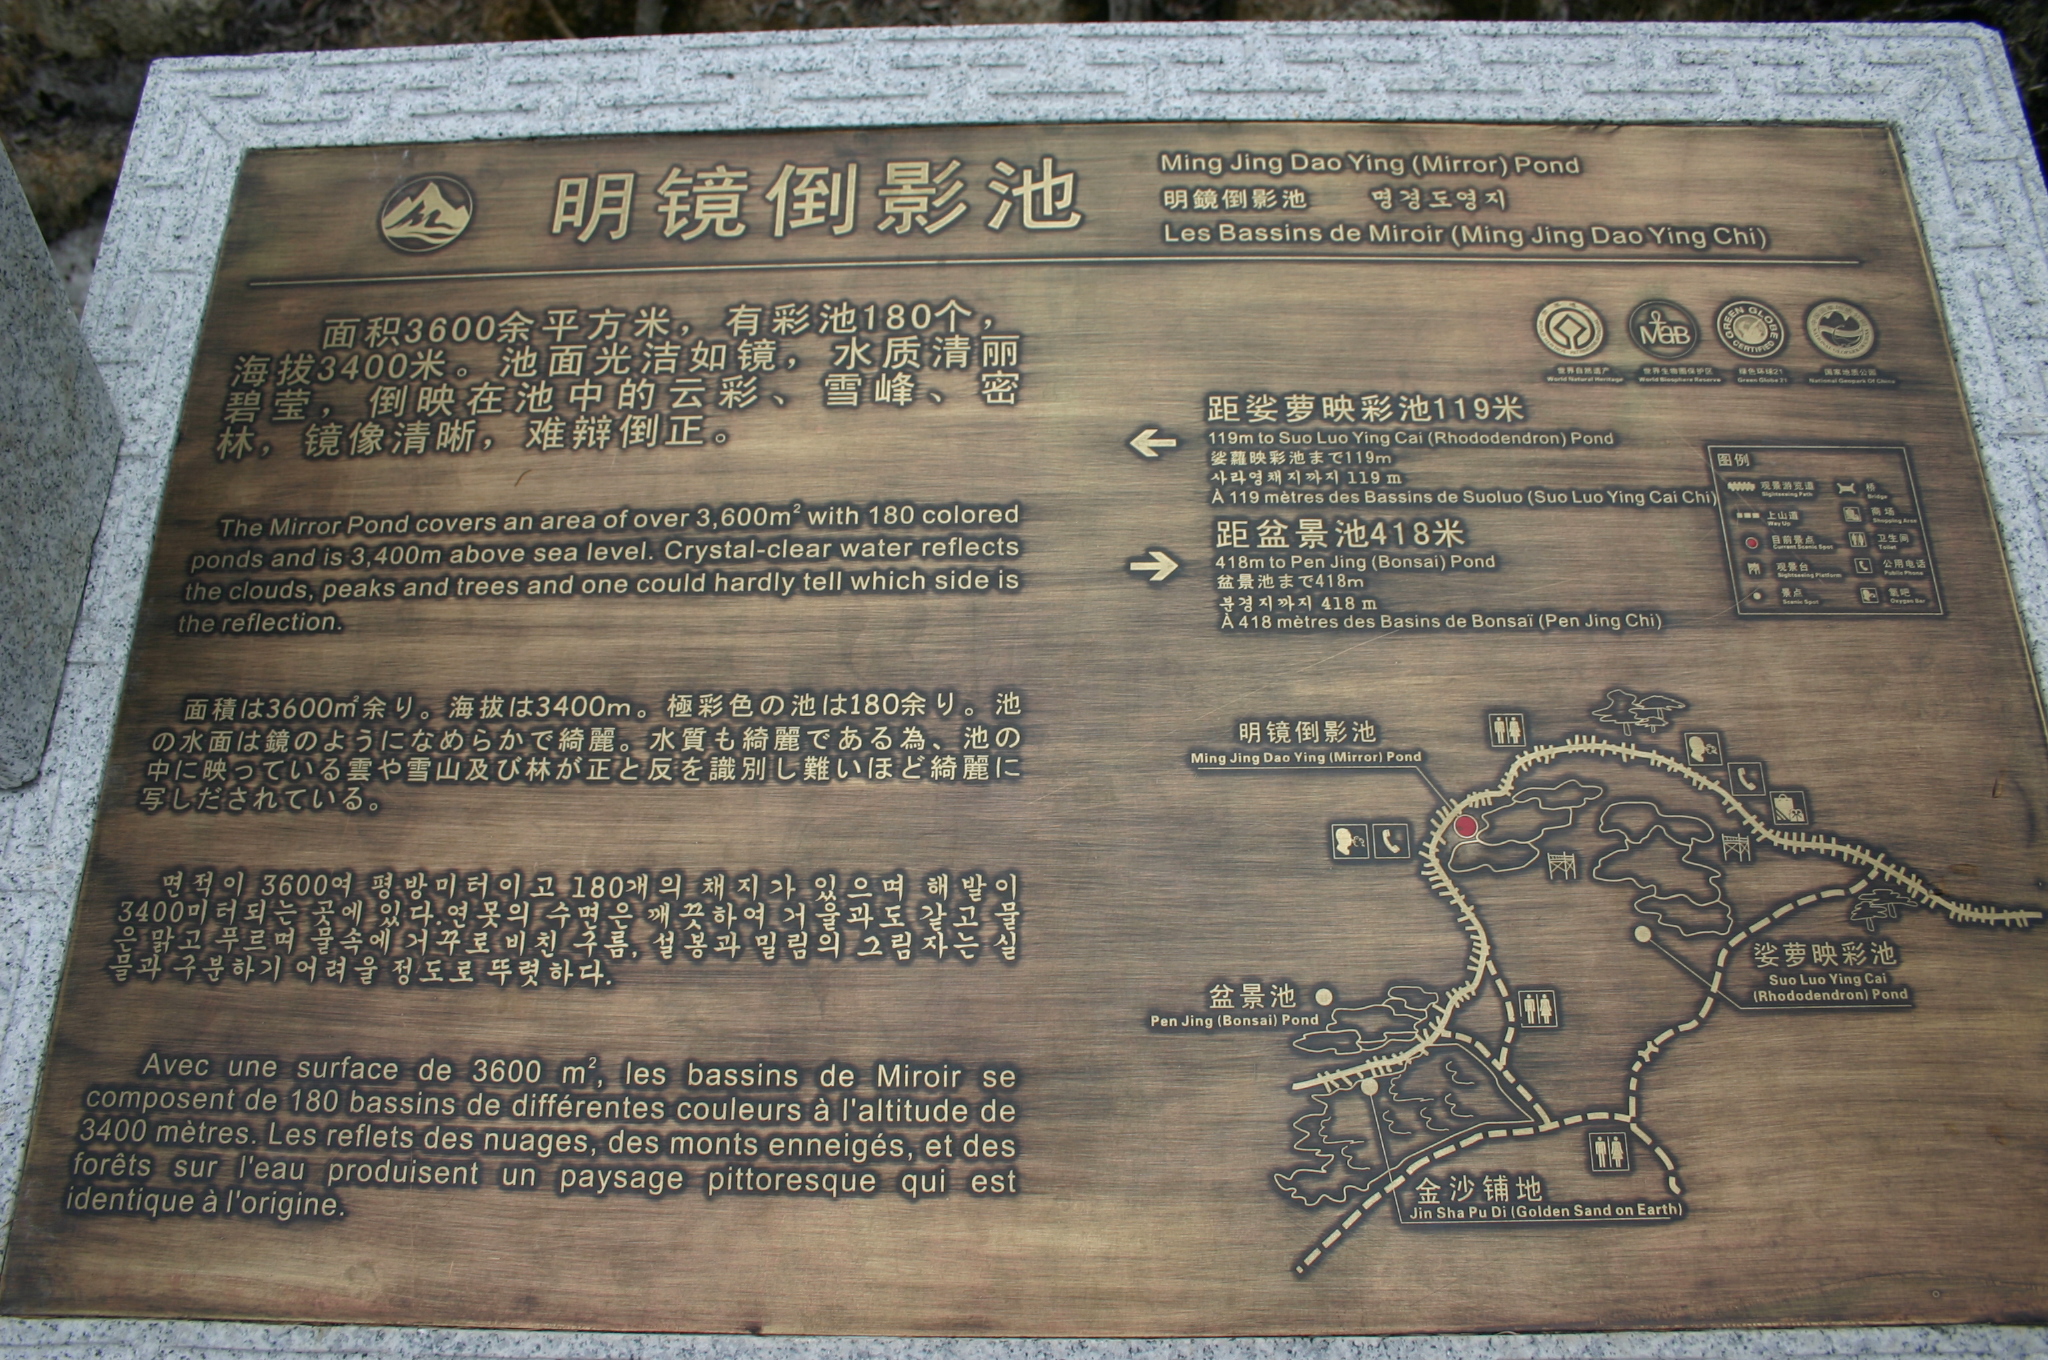 明镜倒影池
Ming Jing Dao Ying (Mirror) Pond
明鏡倒影池 명경도영지
Les Bassins de Miroir (Ming Jing Dao Ying Chi)
面积3600余平方米，有彩池180个，
海拔3400米。池面光洁如镜，水质清丽
碧莹，倒映在池中的云彩、雪峰、密
林，镜像清晰，难辩倒正。
The Mirror Pond covers an area of over 3,600m² with 180 colored
ponds and is 3,400m above sea level. Crystal-clear water reflects
the clouds, peaks and trees and one could hardly tell which side is
the reflection.
面積は3600㎡余り。海拔は3400m。極彩色の池は180余り。池
の水面は鏡のようになめらかで綺麗。水質も綺麗である為、池の
中に映っている雲や雪山及び林が正と反を識別し難いほど綺麗に
写しだされている。
면적이 3600여 평방미터이고 180개의 채지가 있으며 해발이
3400미터되는 곳에 있다.연못의 수면은 깨끗하여 거울과도 같고 물
은맑고 푸르며 물속에 거꾸로 비친 구름, 설봉과 밀림의 그림자는 실
물과 구분하기 어려울 정도로 뚜렷하다.
Avec une surface de 3600 m², les bassins de Miroir se
composent de 180 bassins de différentes couleurs à l'altitude de
3400 mètres. Les reflets des nuages, des monts enneigés, et des
forêts sur l'eau produisent un paysage pittoresque qui est
identique à l'origine.
MaB
GREEN GLOBE
CERTIFIED
世界自然遗产 世界生物圈保护区 绿色环球21 国家地质公园
World Natural Heritage World Biosphere Reserve Green Globe 21 National Geopark Of China
距娑萝映彩池119米
119m to Suo Luo Ying Cai (Rhododendron) Pond
娑蘿映彩池まで119m
사라영채지까지 119 m
À 119 mètres des Bassins de Suoluo (Suo Luo Ying Cai Chi)
距盆景池418米
418m to Pen Jing (Bonsai) Pond
盆景池まで418m
분경지까지 418 m
À 418 mètres des Basins de Bonsaï (Pen Jing Chi)
图例
观景游览道 桥
Sightseeing Path Bridge
上山道 商场
Way Up Shopping Area
目前景点 卫生间
Current Scenic Spot Toilet
观景台 公用电话
Sightseeing Platform Public Phone
景点 氧吧
Scenic Spot Oxygen Bar
明镜倒影池
Ming Jing Dao Ying (Mirror) Pond
娑萝映彩池
Suo Luo Ying Cai
(Rhododendron) Pond
盆景池
Pen Jing (Bonsai) Pond
金沙铺地
Jin Sha Pu Di (Golden Sand on Earth)